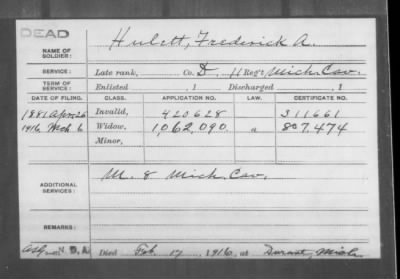 DEAD
NAME OF SOLDIER: Hulett, Frederick A.
SERVICE: Late rank, Co. D, 11 Reg't Mich. Cav.
TERM OF SERVICE: Enlisted , 1 Discharged , 1
DATE OF FILING. CLASS. APPLICATION NO. LAW. CERTIFICATE NO.
1881 Apr 26 Invalid, 420628 311661
1916 Mch 6 Widow, 1,062,090. a 807,474
Minor,
ADDITIONAL SERVICES: M. 8 Mich. Cav.
REMARKS:
Died Feb 17, 1916, at Durand, Mich